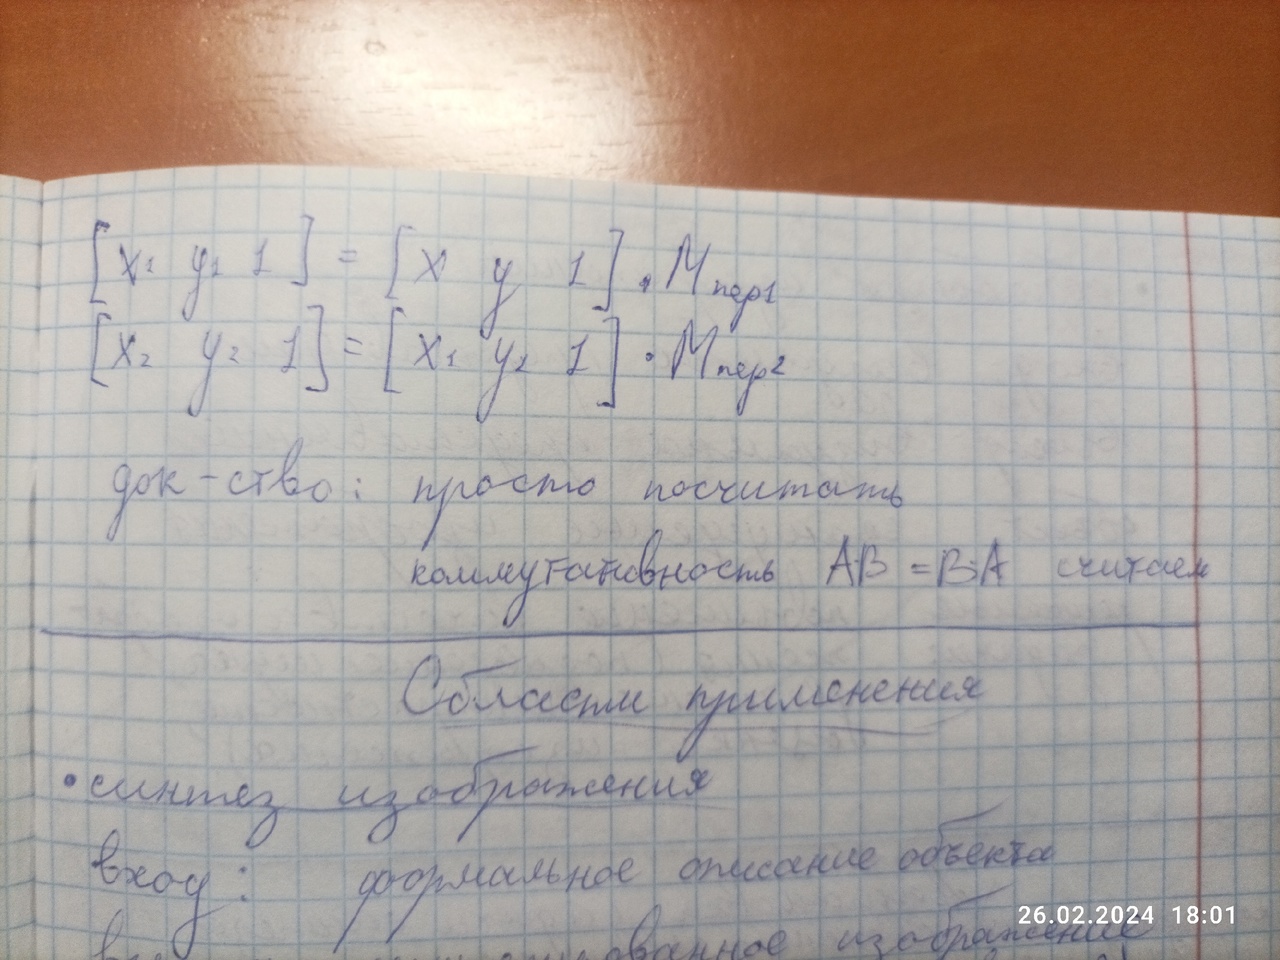 [x₁ y₁ 1] = [x y 1] · Mпер1
[x₂ y₂ 1] = [x₁ y₁ 1] · Mпер2
док-ство: просто посчитать
коммутативность A·B = B·A считаем
Области применения
• синтез изображения
вход: формальное описание объекта
изображение
26.02.2024 18:01